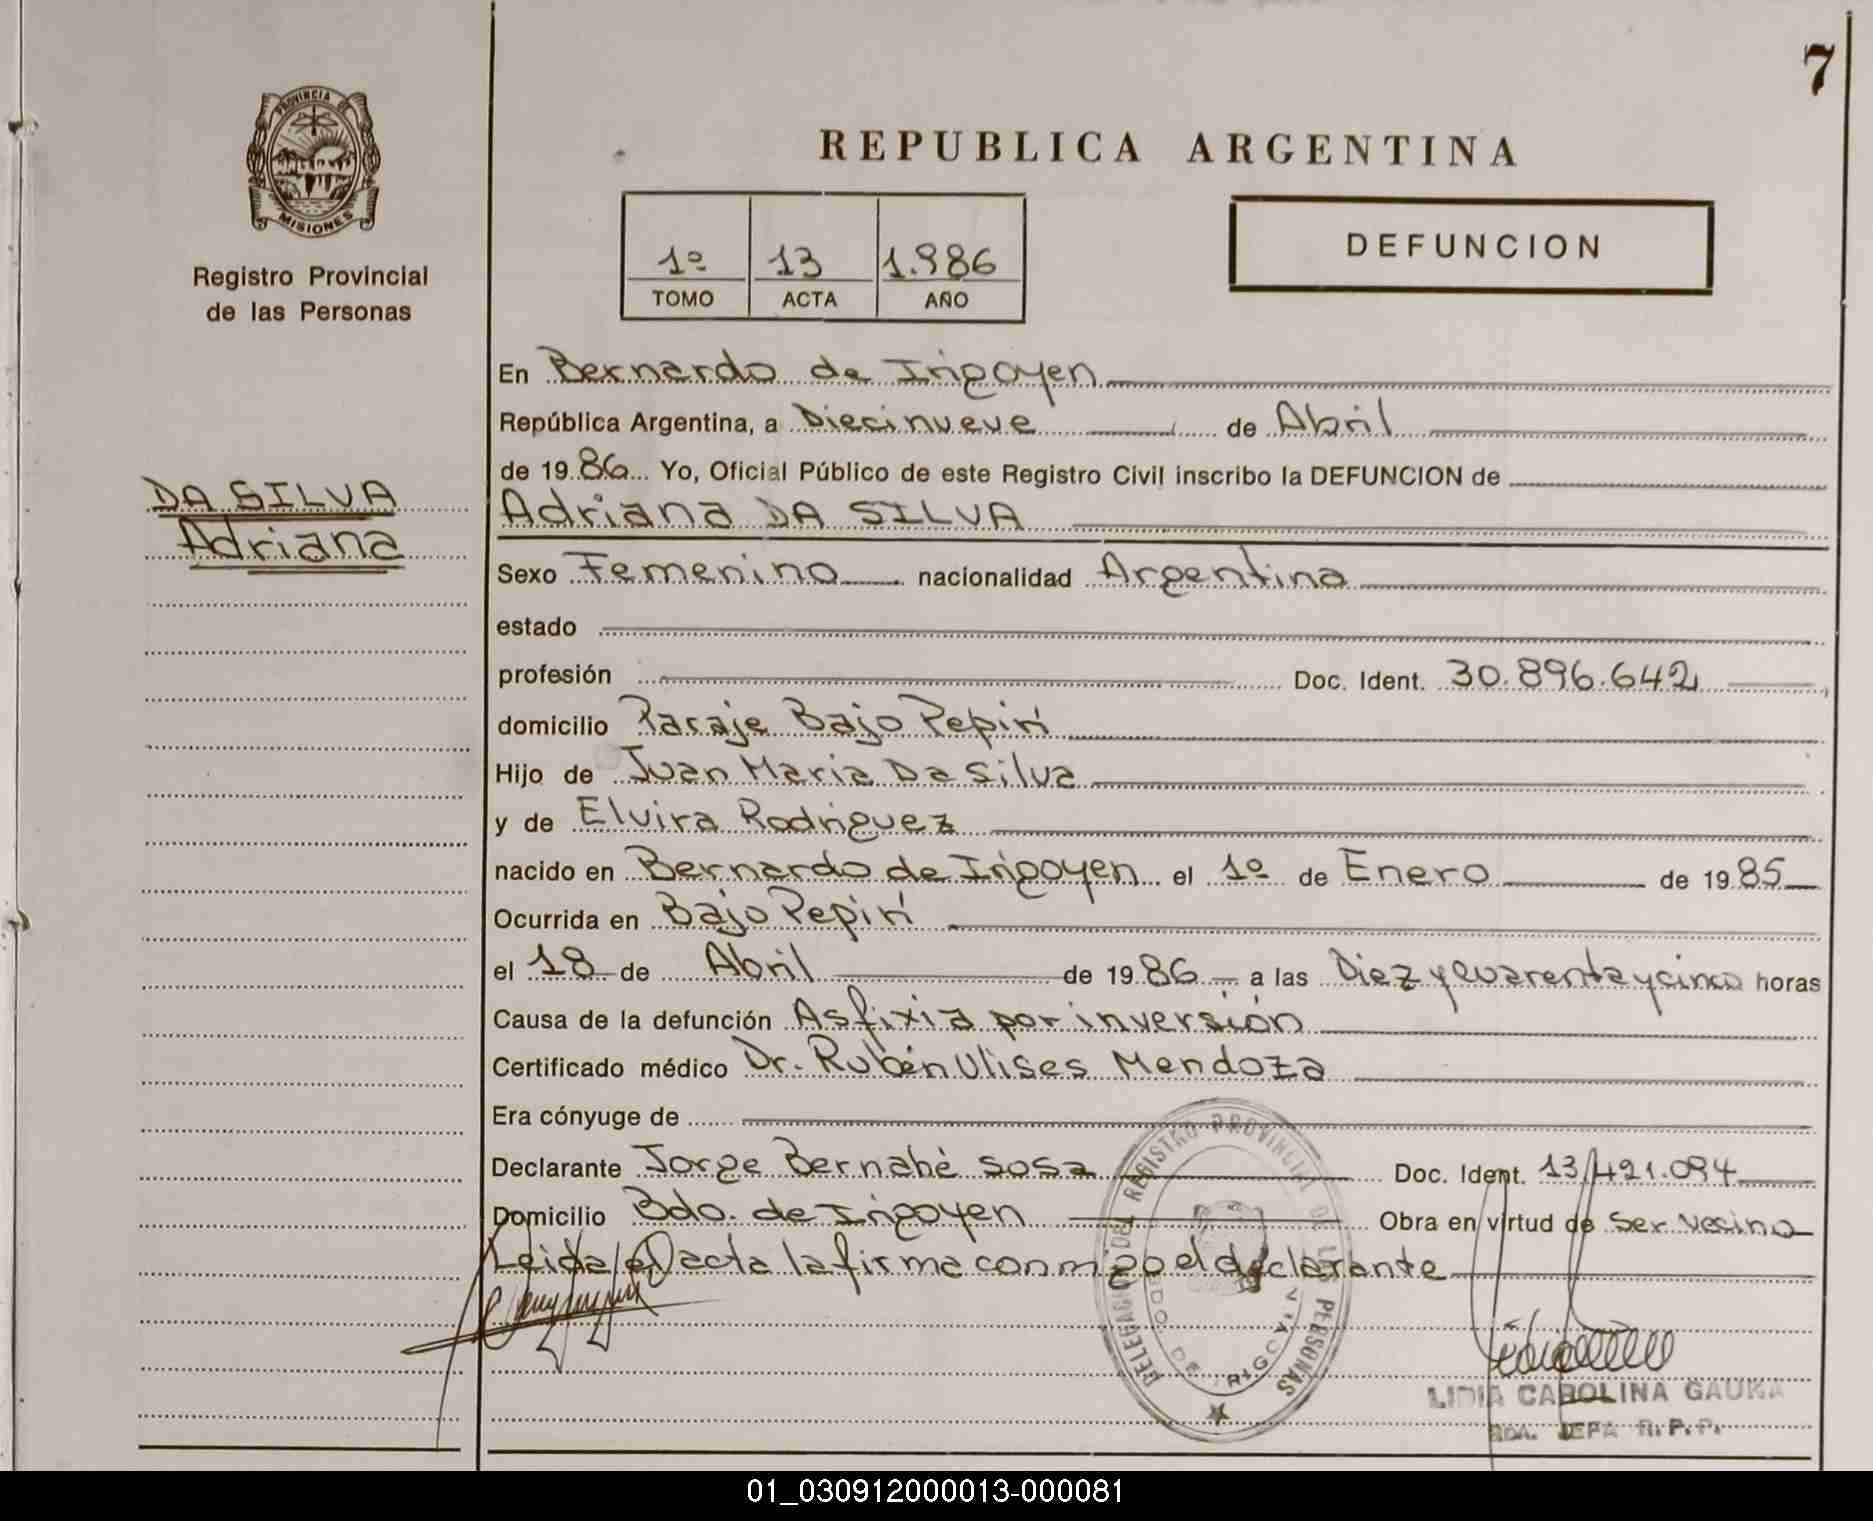 7
PROVINCIA DE
MISIONES
Registro Provincial
de las Personas
REPUBLICA ARGENTINA
1º 13 1.986
TOMO ACTA AÑO
DEFUNCION
DA SILVA
Adriana
En Bernardo de Irigoyen
República Argentina, a Diecinueve de Abril
de 19 86 Yo, Oficial Público de este Registro Civil inscribo la DEFUNCION de
Adriana DA SILVA
Sexo Femenino nacionalidad Argentina
estado
profesión Doc. Ident. 30.896.642
domicilio Paraje Bajo Pepirí
Hijo de Juan Maria Da Silva
y de Elvira Rodriguez
nacido en Bernardo de Irigoyen el 1º de Enero de 19 85
Ocurrida en Bajo Pepirí
el 18 de Abril de 19 86 a las Diez y cuarenta y cinco horas
Causa de la defunción Asfixia por inversión
Certificado médico Dr. Rubén Ulises Mendoza
Era cónyuge de
Declarante Jorge Bernabé Sosa Doc. Ident. 13.421.094
Domicilio Bdo. de Irigoyen Obra en virtud de ser vecino
Leida el acta la firma conmigo el declarante
DELEGACION DEL REGISTRO PROVINCIAL DE LAS PERSONAS
BDO. DE IRIGOYEN
LIDIA CAROLINA GAUNA
JEFA R.P.P.
01_030912000013-000081